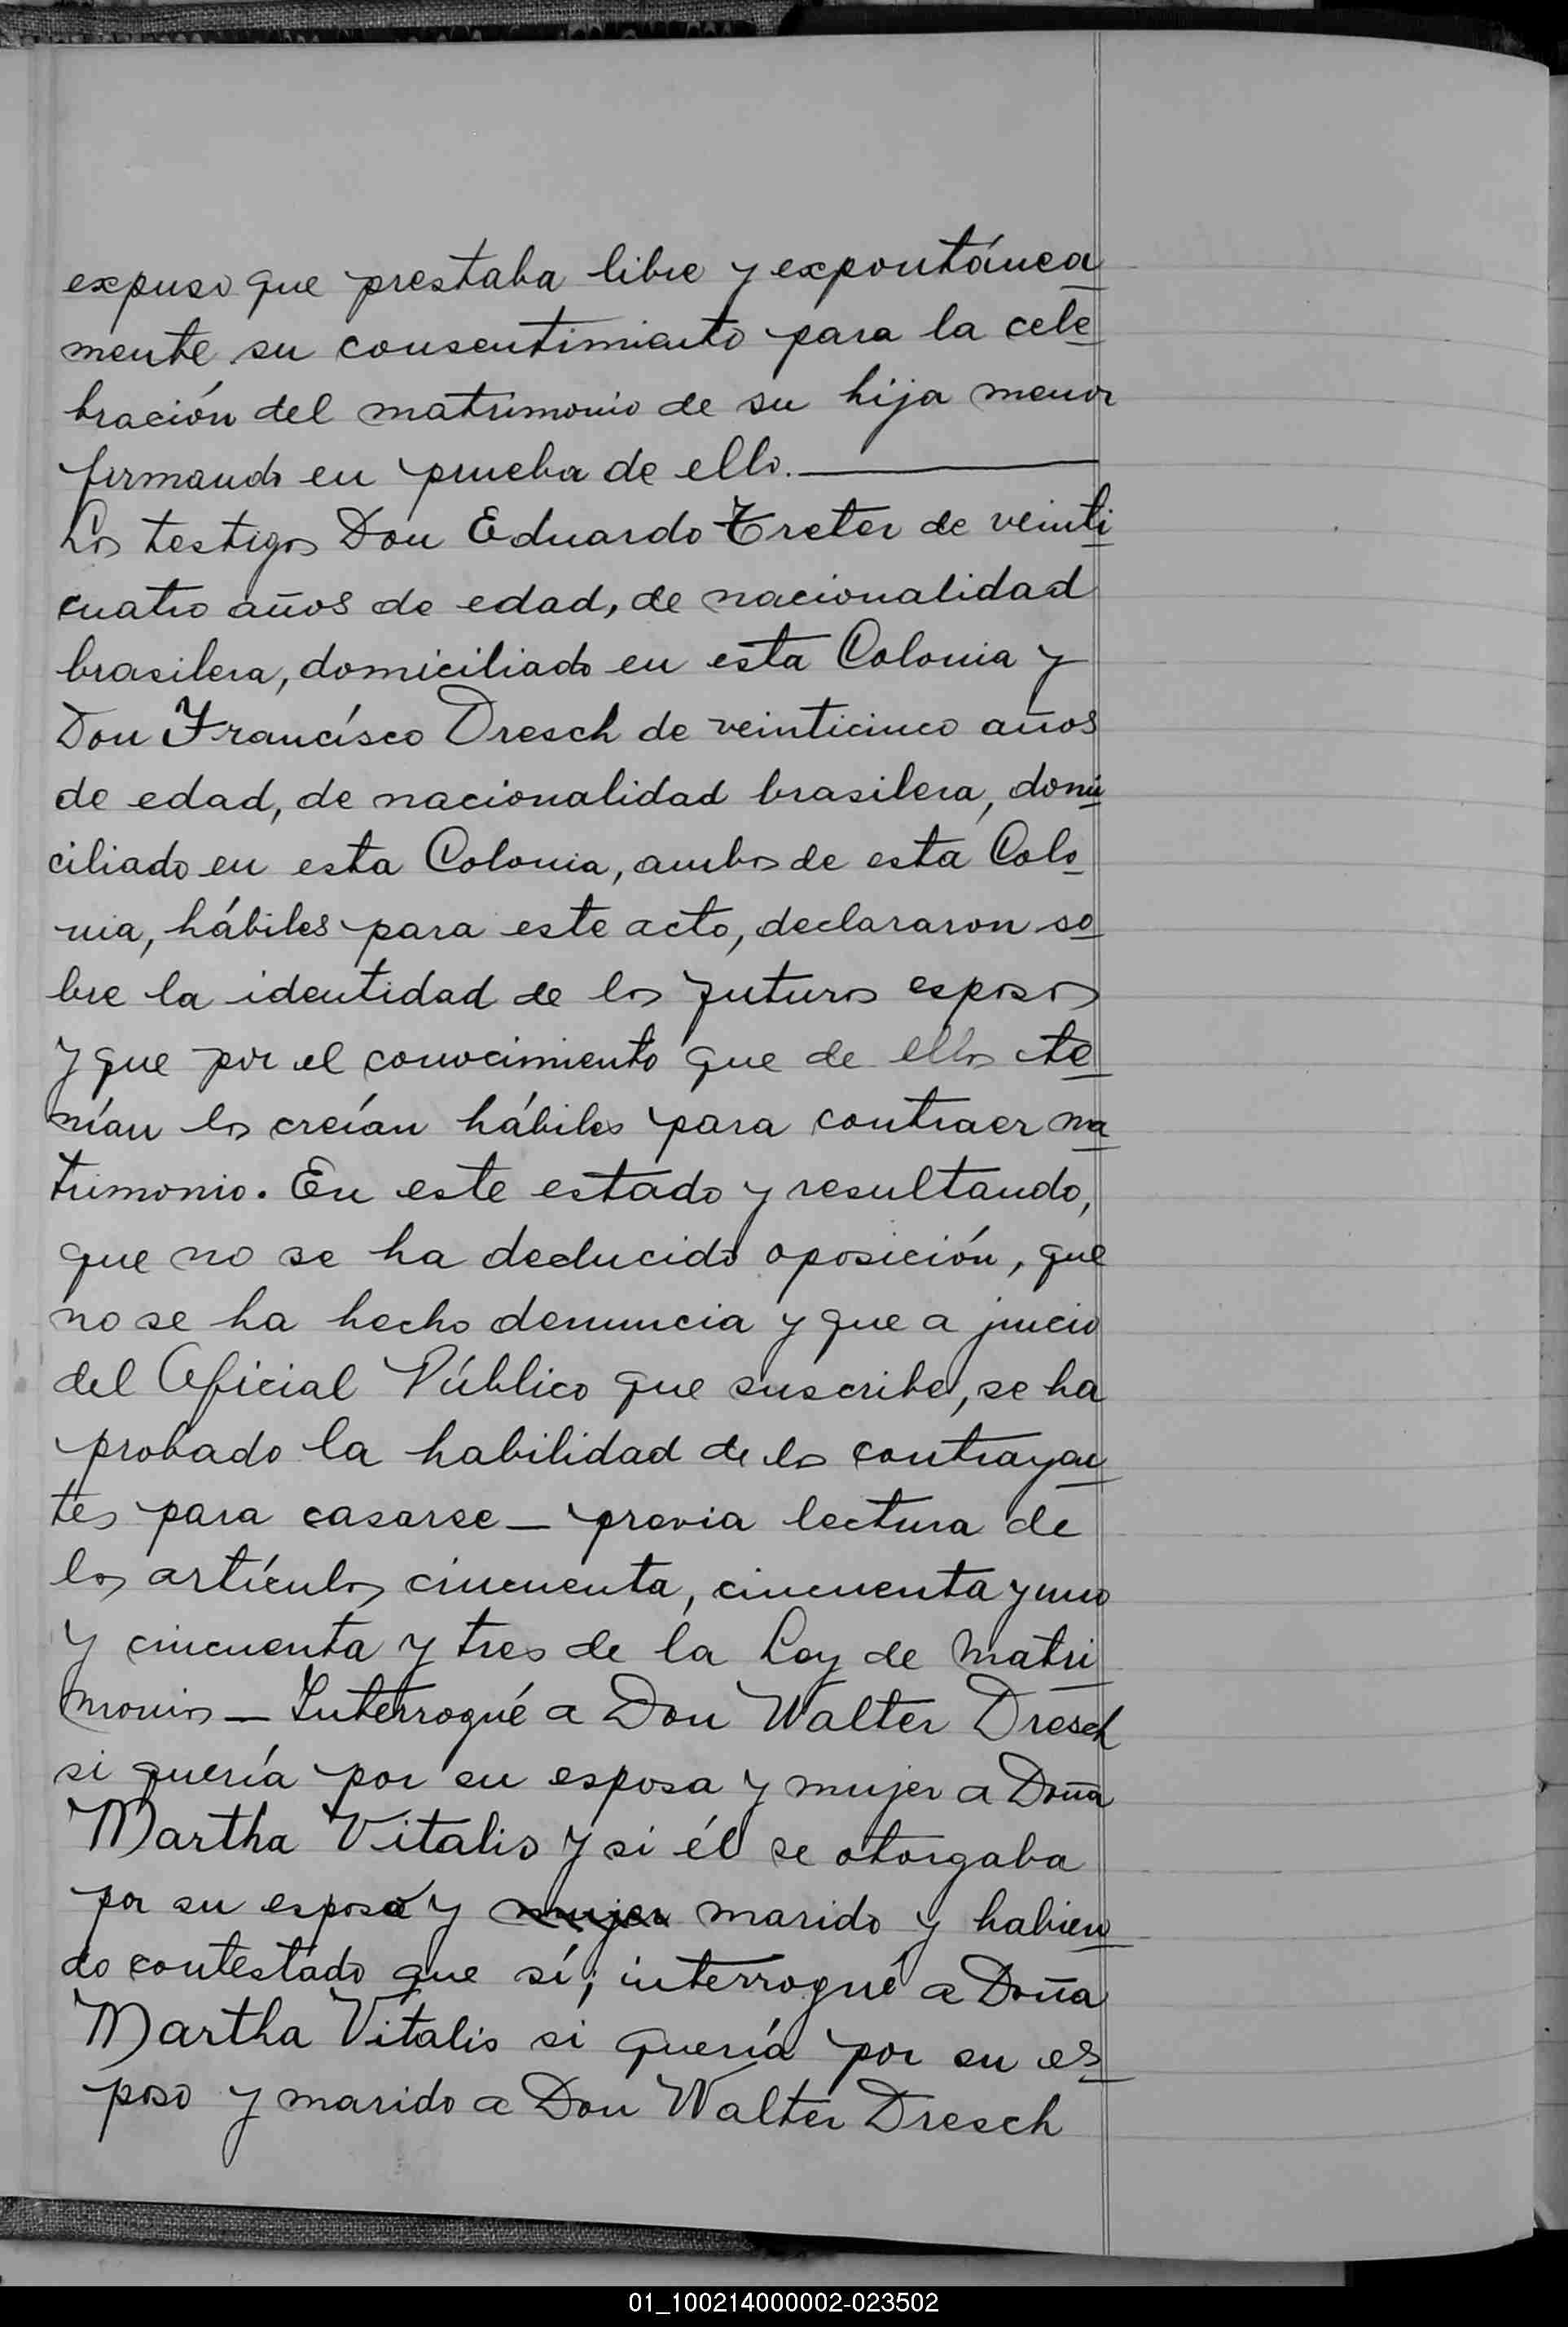 expuso que prestaba libre y expontánea
mente su consentimiento para la cele
bración del matrimonio de su hija menor
firmando en prueba de ello.
Los testigos Don Eduardo Treter de veinti
cuatro años de edad, de nacionalidad
brasilera, domiciliado en esta Colonia y
Don Francísco Dresch de veinticinco años
de edad, de nacionalidad brasilera, domi
ciliado en esta Colonia, ambos de esta Colo
nia, hábiles para este acto, declararon so
bre la identidad de los futuros esposos
y que por el conocimiento que de ellos te
nían los creían hábiles para contraer ma
trimonio. En este estado y resultando,
que no se ha deducido oposición, que
no se ha hecho denuncia y que a juicio
del Oficial Público que suscribe, se ha
probado la habilidad de los contrayen
tes para casarse — previa lectura de
los artículos cincuenta, cincuenta y uno
y cincuenta y tres de la Ley de Matri
monios — Interrogué a Don Walter Dresch
si quería por su esposa y mujer a Doña
Martha Vitalis y si él se otorgaba
por su esposo y mujer marido y habien
do contestado que sí; interrogué a Doña
Martha Vitalis si quería por su es
poso y marido a Don Walter Dresch
01_100214000002-023502